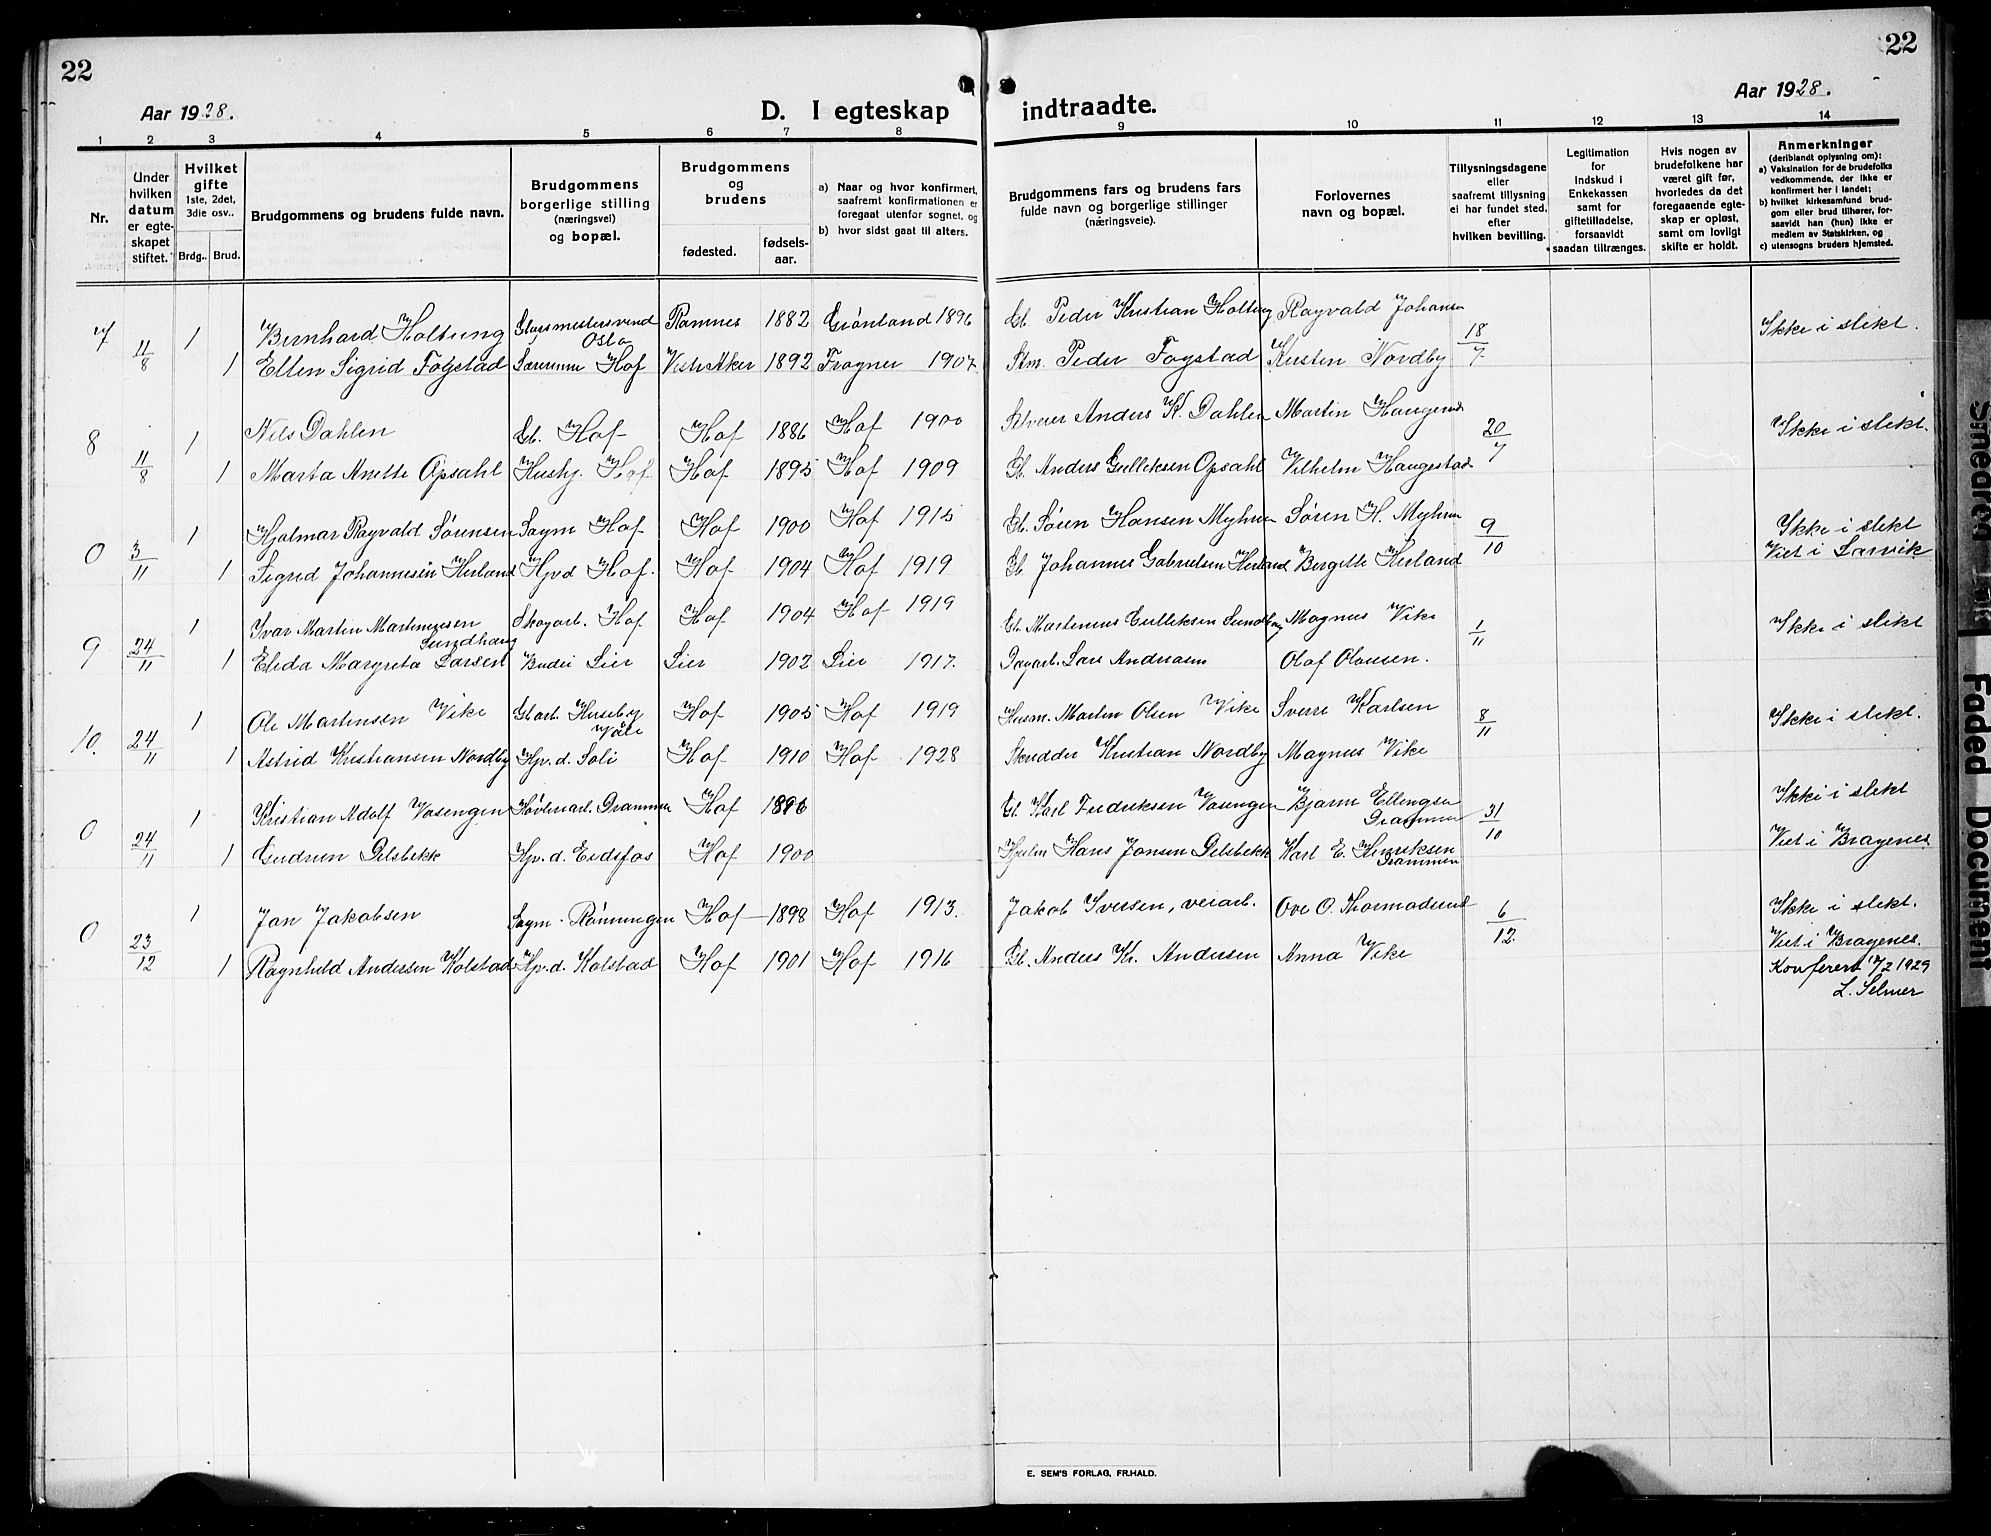 22
22
Aar 1928.
D. I egteskap indtraadte.
Aar 1928.
1 2 3 4 5 6 7 8 9 10 11 12 13 14
Nr.
Under hvilken datum er egte-skapet stiftet.
Hvilket gifte 1ste, 2det, 3die osv..
Brdg.. Brud.
Brudgommens og brudens fulde navn.
Brudgommens borgerlige stilling (næringsvei) og bopæl.
Brudgommens og brudens
fødested.
fødsels-aar.
a) Naar og hvor konfirmert, saafremt konfirmationen er foregaat utenfor sognet, og
b) hvor sidst gaat til alters.
Brudgommens fars og brudens fars fulde navn og borgerlige stillinger (næringsveie).
Forlovernes navn og bopæl.
Tillysningsdagene eller saafremt tillysning ei har fundet sted, efter hvilken bevilling.
Legitimation for Indskud i Enkekassen samt for giftetilladelse, forsaavidt saadan tiltrænges.
Hvis nogen av brudefolkene har været gift før, hvorledes da det foregaaende egte-skap er opløst, samt om lovligt skifte er holdt.
Anmerkninger (deriblandt oplysning om):
a) Vaksination for de brudefolks vedkommende, der ikke er konfirmert her i landet;
b) hvilket kirkesamfund brud-gom eller brud tilhører, for-saavidt han (hun) ikke er medlem av Statskirken, og
c) utensogns bruders hjemsted.
7 11/8 1 Bernhard Holtung Glassmestersvend Oslo Ramnes 1882 Grønland 1896 Gb. Peder Kristian Holtung Ragvald Johansen 18/7 Ikke i slekt.
1 Ellen Sigrid Fogstad Hof Vestr Aker 1892 Frogner 1907. Stm. Peder Fogstad Kirsten Nordby
8 11/8 1 Nils Dahlen Gb. Hof Hof 1886 Hof 1900 Selveier Anders K. Dahlen Martin Haugerud 20/7 Ikke i slekt.
1 Marta Anette Opsahl Hushj. Hof Hof 1895 Hof 1909 Gb. Anders Gulliksen Opsahl Vilhelm Haugestad
0 3/11 1 Hjalmar Ragvald Sørensen Sagm Hof Hof 1900 Hof 1915 Gb. Søren Hansen Myhren Søren H. Myhren 9/10 Ikke i slekt
1 Sigrid Johannesen Herland Hjvd Hof. Hof 1904 Hof 1919 Gb. Johannes Gabrielsen Herland Bergitte Herland Viet i Larvik
9 24/11 1 Ivar Martin Martinusen Sundhaug Skogarb. Hof Hof 1904 Hof 1919 Gb. Martinus Gulliksen Sundhaug Magnus Vike 1/11 Ikke i slekt
1 Elida Margreta Larsen Budei Lier Lier 1902 Lier 1917. Dagarb. Lars Andersen Olaf Olausen.
10. 24/11 1 Ole Martinsen Vike Gbarb. Huseby Våle Hof 1905 Hof 1919 Husm. Martin Olsen Vike Sverre Karlsen 8/11 Ikke i slekt.
1 Astrid Kristiansen Nordby Hv. d. Soli Hof 1910 Hof 1928 Skredder Kristian Nordby Magnus Vike
0 24/11 1 Kristian Adolf Vasengen Høvleriarb. Drammen Hof 1896 Gb. Karl Fredriksen Vasengen Bjarne Ellingsen Drammen 31/10 Ikke i slekt
1 Gudrun Delsbekk Hv. d. Eidsfos Hof 1900 Hans Jonsen Delsbekk Karl E. Henriksen Drammen Viet i Bragenes
0 23/12 1 Jan Jakobsen Sagm. Rønningen Hof 1898 Hof 1913. Jakob Iversen, veiarb. Ove O. Thormodsrud 6/12. Ikke i slekt.
1 Ragnhild Andersen Kolstad Hv. d. Kolstad Hof 1901 Hof 1916 Gb. Anders Kr. Andersen Anna Vike Viet i Bragenes.
Konferert 17/2 1929
L. Selmer
E. SEM'S FORLAG, FR.HALD.
Smeared Ink
Faded Document